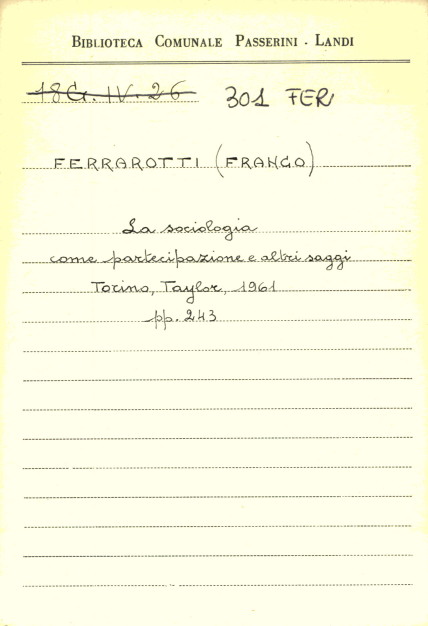 BIBLIOTECA COMUNALE PASSERINI - LANDI
18G.IV.26 301 FER
FERRAROTTI (FRANCO)
La sociologia
come partecipazione e altri saggi
Torino, Taylor, 1961
pp. 243